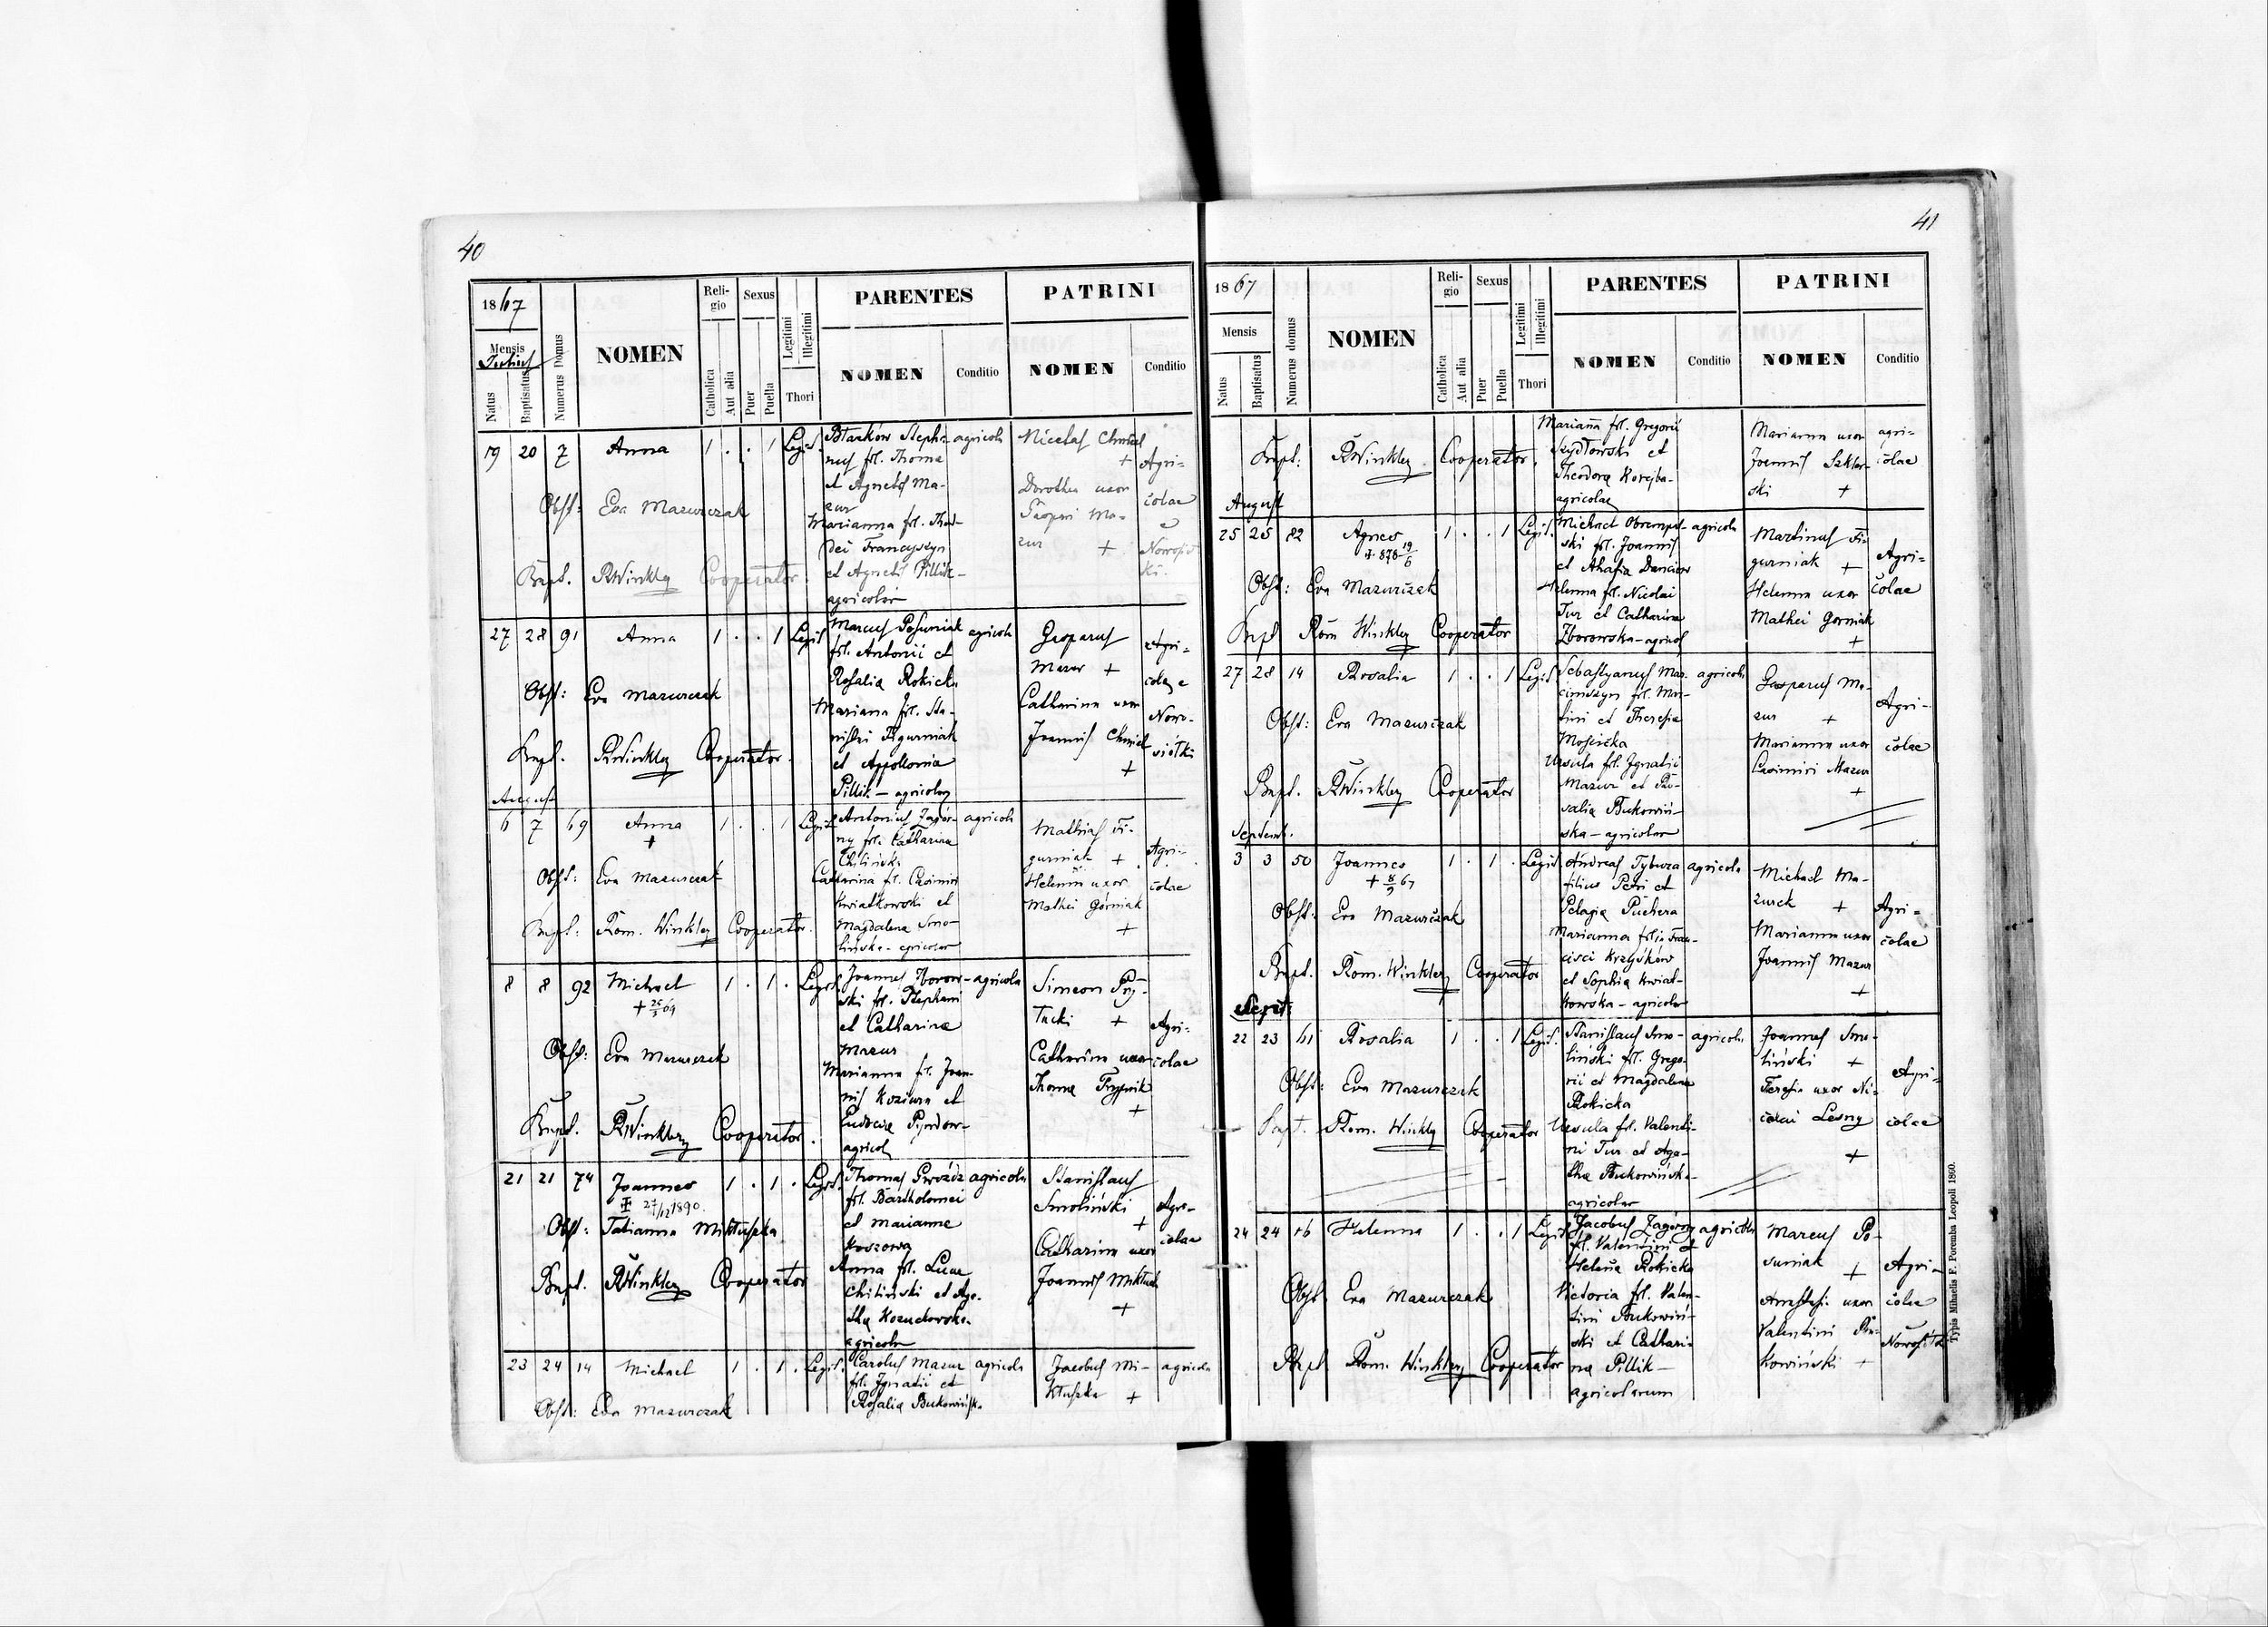 40
1867
Mensis
Julius
Natus
Baptisatus
Numerus Domus
NOMEN
Religio
Catholica
Aut alia
Sexus
Puer
Puella
Legitimi
Illegitimi
Thori
PARENTES
NOMEN
Conditio
PATRINI
NOMEN
Conditio
19 20 7 Anna 1 . . 1 Legit.
Obst: Eva Mazurczak
Bapt. RWinkler Cooperator.
Stepha-
nus fil. Thoma
et Agnetis Ma-
zur
Marianna fil. Thad-
dei Franciszyn
et Agnetis Pillik -
agricolar
agricola
Nicetas Chmiel
+
Dorothea uxor
Gaspari Ma-
zur +
Agri-
colae
27 28 91 Anna 1 . . 1 Legit
Obst: Eva Mazurczak
Bapt. RWinkler Cooperator.
Marcus Posuniak
fil. Antonii et
Rosalia Rokicka
Mariana fil. Sta-
nislai Figurniak
et Appollonia
Pillik - agricolar
agricola
Gasparus
Mazur +
Catharina uxor
Joannis Chmiel
+
Agri-
colae
Nowo-
siółki
August
6 7 69 Anna 1 . . 1 Legit
+
Obst: Eva Mazurczak
Bapt: Rom. Winkler Cooperator.
Antonius Zagór-
ny fil. Catharina
Chiliński
Catharina fil. Casimiri
Kwiatkowski et
Magdalena Smo-
lińska - agricolar
agricola
Mathias Fi-
gurniak +
Helena uxor
Mathei Górniak
+
Agri-
colae
8 8 92 Michael 1 . 1 . Legit
Obst: Eva Mazurczak
Bapt. RWinkler Cooperator.
Joannes Zborow-
ski fil. Stephani
et Catharina
Mazur
Marianna fil. Joan-
nis Koziura et
agricol
agricola
Simeon Pry-
tucki +
Catharina uxor
Thoma
+
Agri-
colae
21 21 74 Joannes 1 . 1 . Legit.
27/12 1890.
Obst: Tatianna Miktuszka
Bapt. RWinkler Cooperator
Thomas Gwóźdz
fil. Bartholomei
et Marianne
Koszowa
Anna fil. Lucae
Chiliński et Aga-
tha Kozuchowska
agricolar
agricola
Stanislaus
Smoliński
+
Catharina uxor
Joannis
+
Agri-
colae
23 24 14 Michael 1 . 1 . Legit.
Obst: Eva Mazurczak
Carolus Mazur
fil. Ignatii et
Rosalia Bukowińska
agricola
Jacobus Mi-
ktuszka +
agricola
41
1867
Mensis
Natus
Baptisatus
Numerus domus
NOMEN
Religio
Catholica
Aut alia
Sexus
Puer
Puella
Legitimi
Illegitimi
Thori
PARENTES
NOMEN
Conditio
PATRINI
NOMEN
Conditio
Bapt: RWinkler Cooperator.
Marianna fil. Gregorii
Szydłowski et
Theodora Korejba-
agricolae
Marianna uxor
Joannis Szklar-
ski +
agri-
colae
August
25 25 82 Agnes 1 . . 1 Legit.
Obst: Eva Mazurczak
Bapt Rom Winkler Cooperator
Michael
ski fil. Joannis
et Ahafia
Helenna fil. Nicolai
Tur et Catharina
Zborowska - agricol
agricola
Martinus Fi-
gurniak +
Helenna uxor
Mathei Gorniak
+
Agri-
colae
27 28 14 Rosalia 1 . . 1 Legit
Obst: Eva Mazurczak
Bapt. RWinkler Cooperator
Sebastyanus Mar-
ciniszyn fil. Mar-
tini et Theresia
Mościcka
Ursula fil. Ignatii
Mazur et Ro-
salia Bukowiń-
ska - agricolar
agricola
Gasparus Ma-
zur +
Marianna uxor
Casimiri Mazur
+
Agri-
colae
Septemb.
3 3 50 Joannes 1 . 1 . Legit
+ 8/9 67
Obst: Eva Mazurczak
Bapt. Rom. Winkler Cooperator
Andreas Tybura
filius Petri et
Pelagia Puchera
Marianna filia Fran-
cisci Krzyśków
et Sophia Kwiat-
kowska - agricolar
agricola
Michael Ma-
zurek +
Marianna uxor
Joannis Mazur
+
Agri-
colae
Sept:
22 23 61 Rosalia 1 . . 1 Legit.
Obst: Eva Mazurczak
Bapt. Rom. Winkler Cooperator
Stanislaus Smo-
liński fil. Grego-
rii et Magdalena
Rokicka
Ursula fil. Valenti-
ni Tur et Aga-
tha Bukowińska-
agricolar
agricola
Joannes Smo-
liński +
Teresia uxor Ni-
colai Lesny
+
Agri-
colae
24 24 16 Helenna 1 . . 1 Legit
Obst. Eva Mazurczak
Bapt Rom. Winkler Cooperator
Jacobus Zagórny
fil. Valentini et
Helena Rokicka
Victoria fil. Valen-
tini Bukowiń-
ski et Cathari-
na Pillik -
agricolarum
agricola
Marcus Po-
suniak +
Anastasia uxor
Valentini Bu-
kowiński +
Agri-
colae
Typis Mihaelis F. Poremba Leopoli 1860.